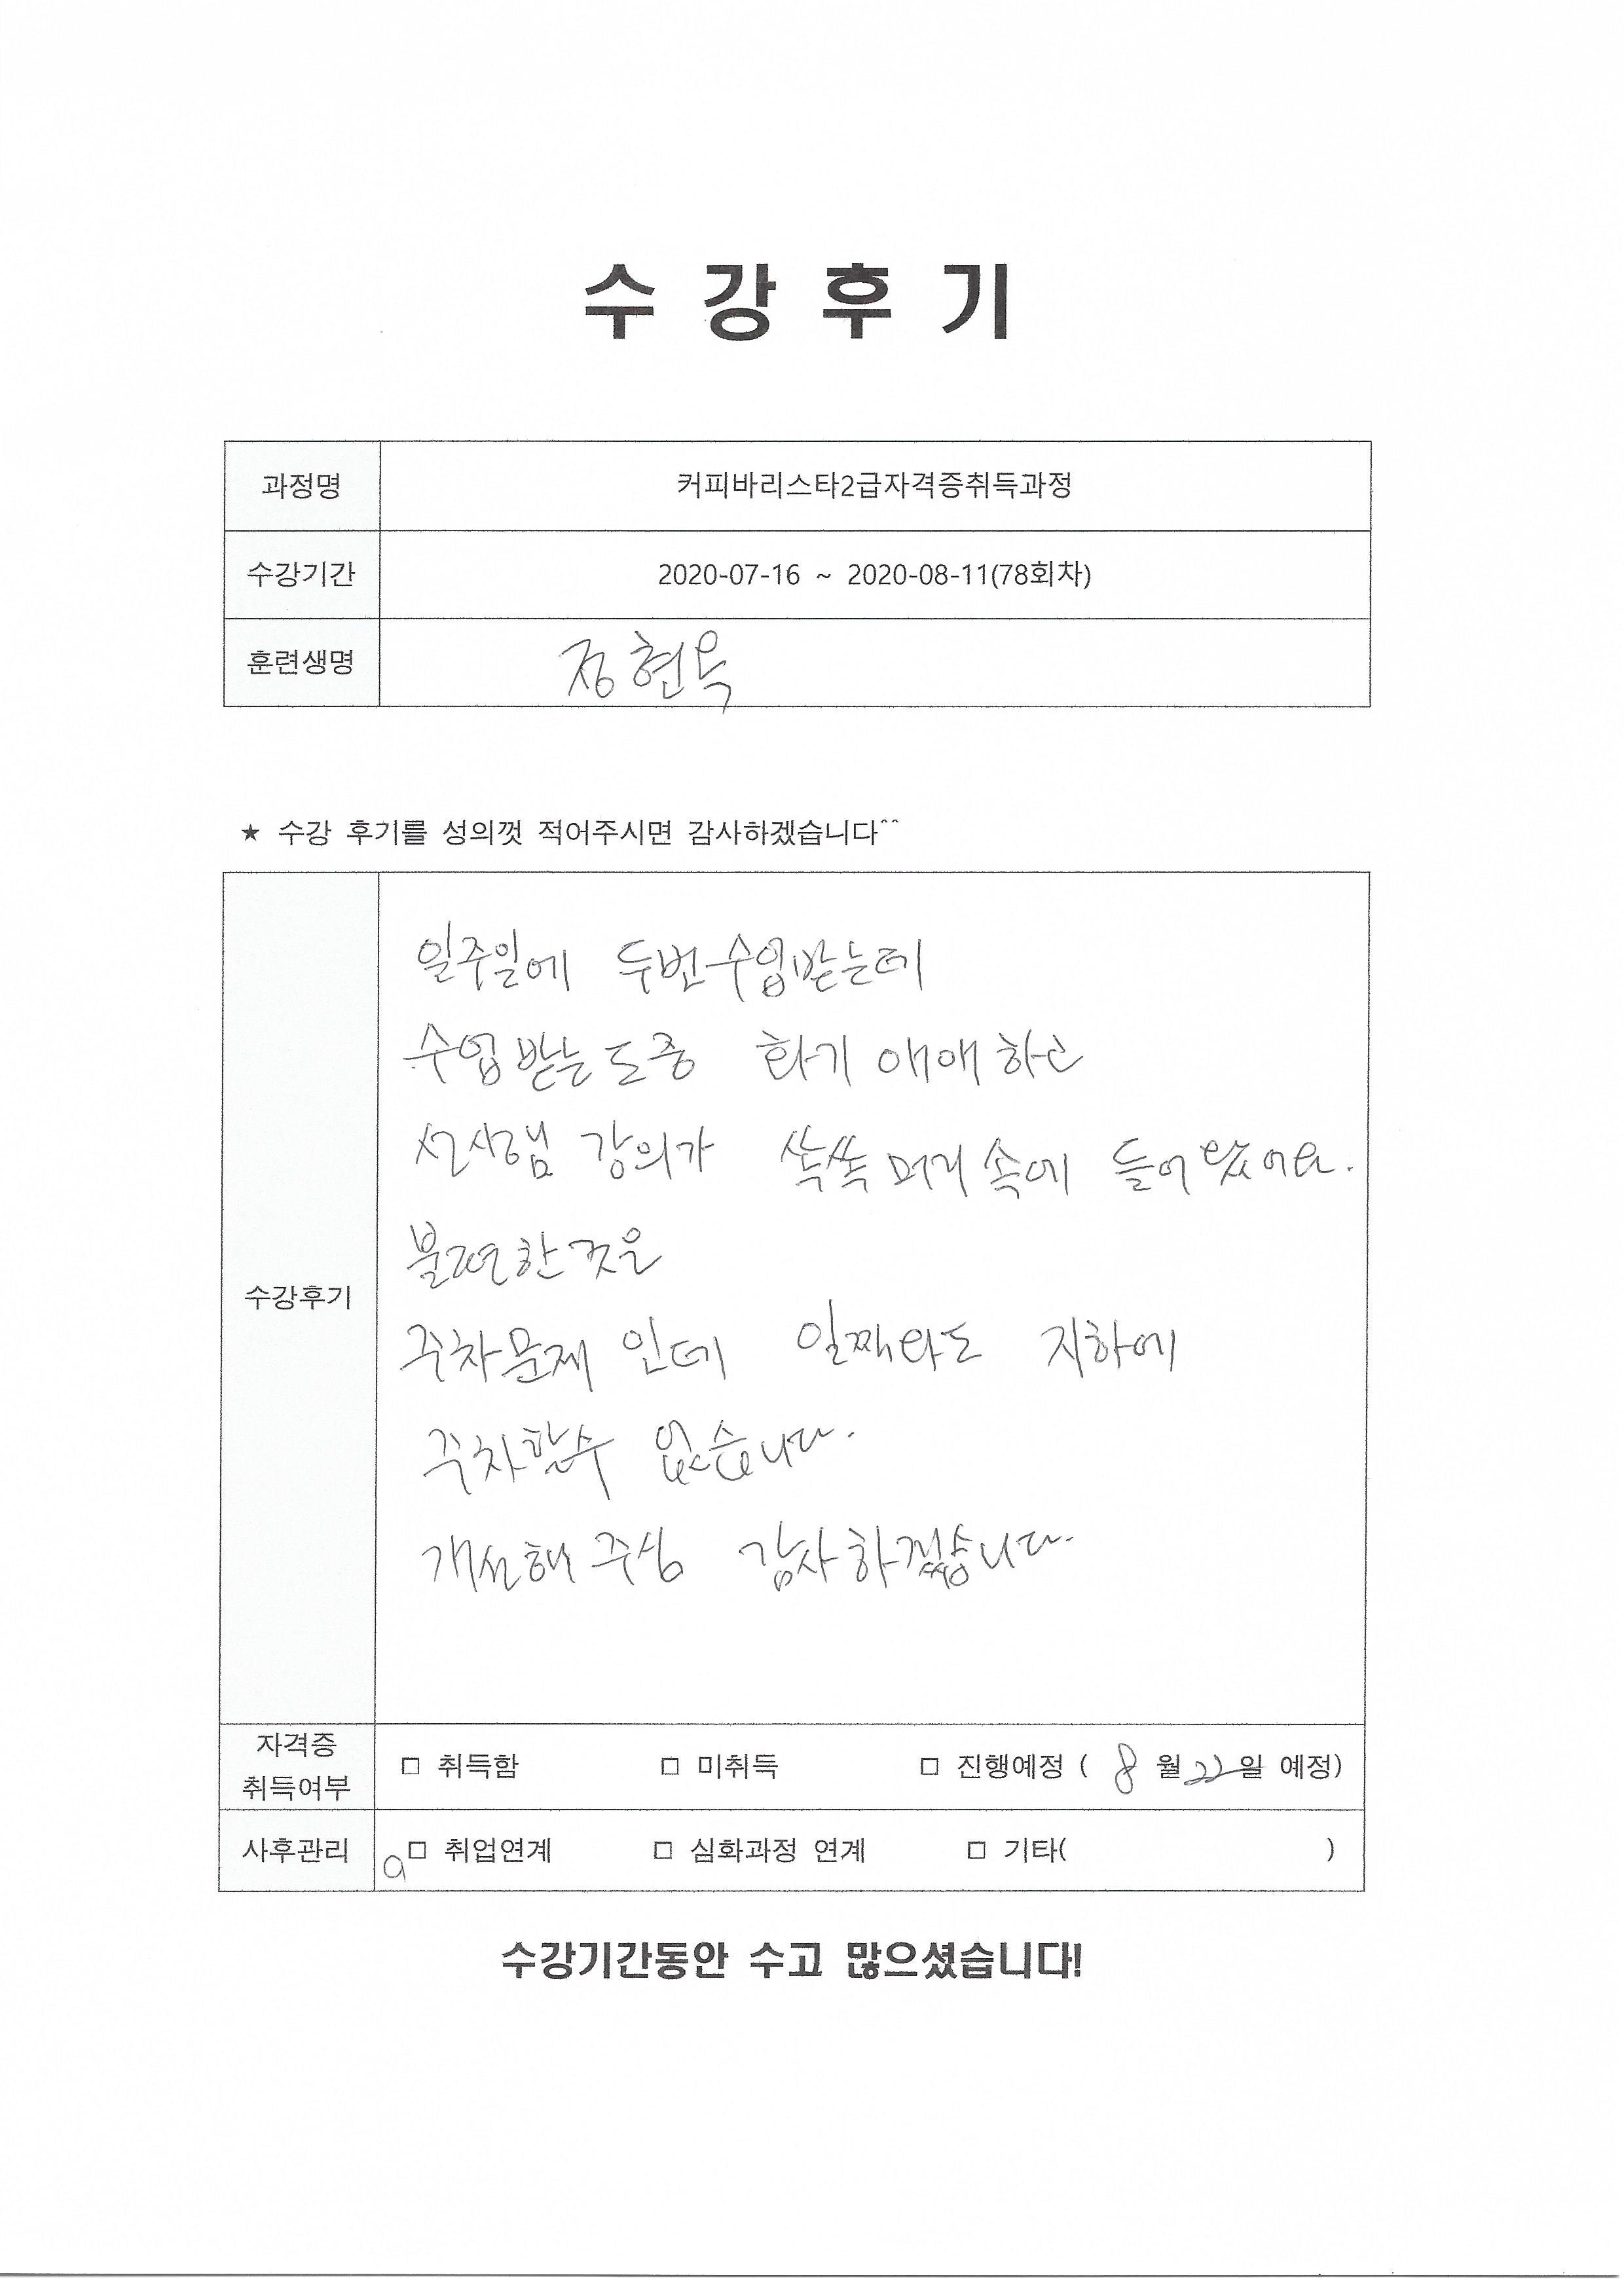 수 강 후 기
과정명 커피바리스타2급자격증취득과정
수강기간 2020-07-16 ~ 2020-08-11(78회차)
훈련생명 정현옥
★ 수강 후기를 성의껏 적어주시면 감사하겠습니다^^
수강후기
일주일에 두번 수업받는데
수업 받는 도중 화기 애애 하고
선생님 강의가 쏙쏙 머리 속에 들어 왔어요.
불편한 것은
주차문제 인데 일찍 와도 지하에
주차할수 없습니다.
개선해 주심 감사 하겠습니다.
자격증
취득여부 □ 취득함 □ 미취득 □ 진행예정 ( 8 월 22 일 예정)
사후관리 □ 취업연계 □ 심화과정 연계 □ 기타( )
수강기간동안 수고 많으셨습니다!